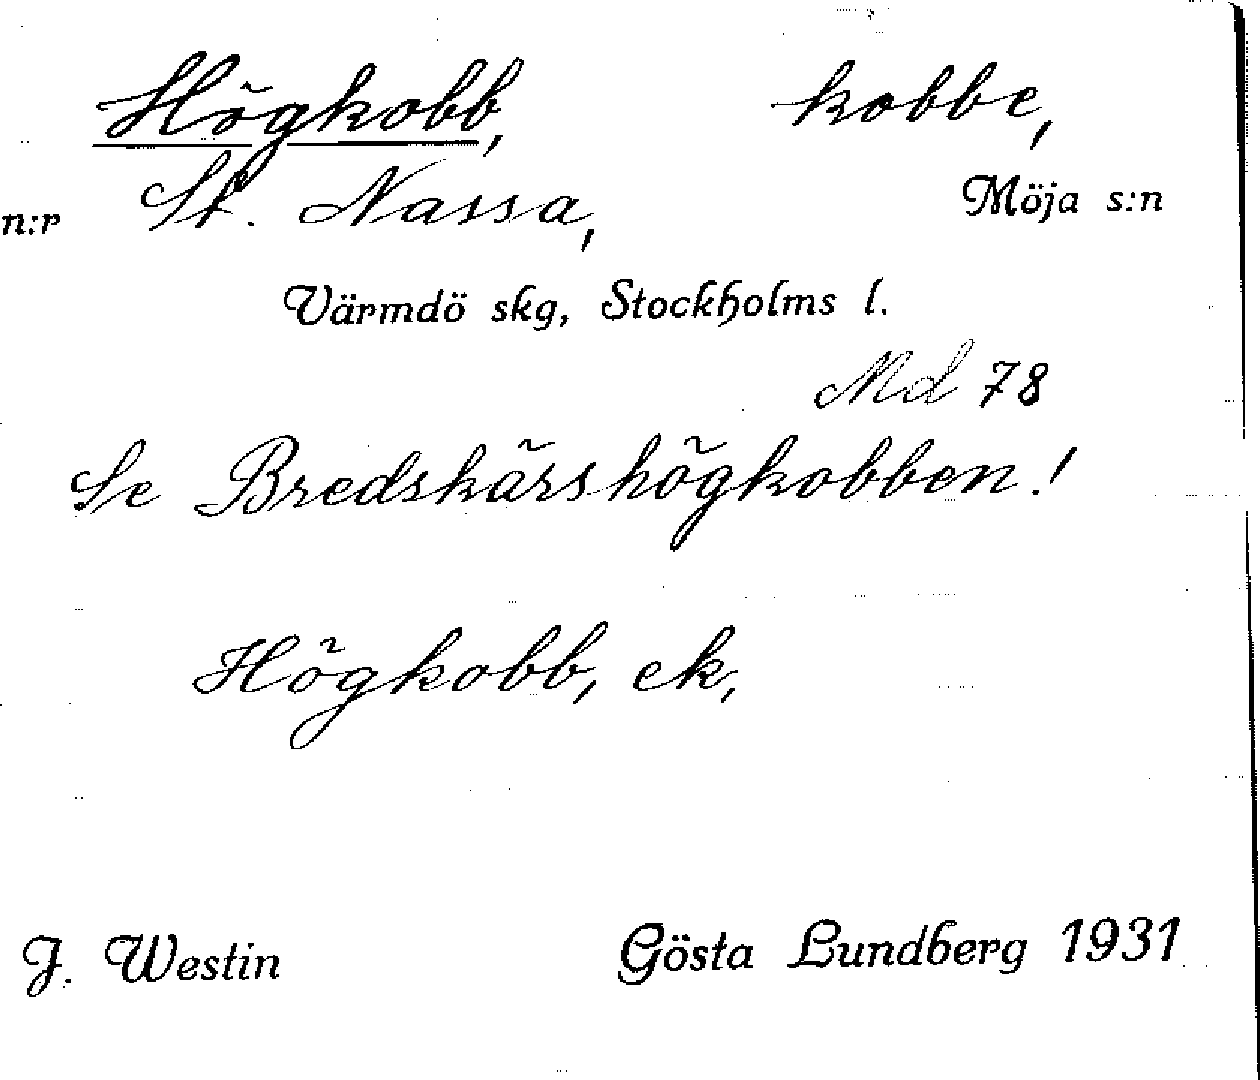 Högkobb, kobbe,
n:r St. Nassa, Möja s:n
Värmdö skg, Stockholms l.
Md 78
Se Bredskärshögkobben!
Högkobb, ek,
J. Westin Gösta Lundberg 1931